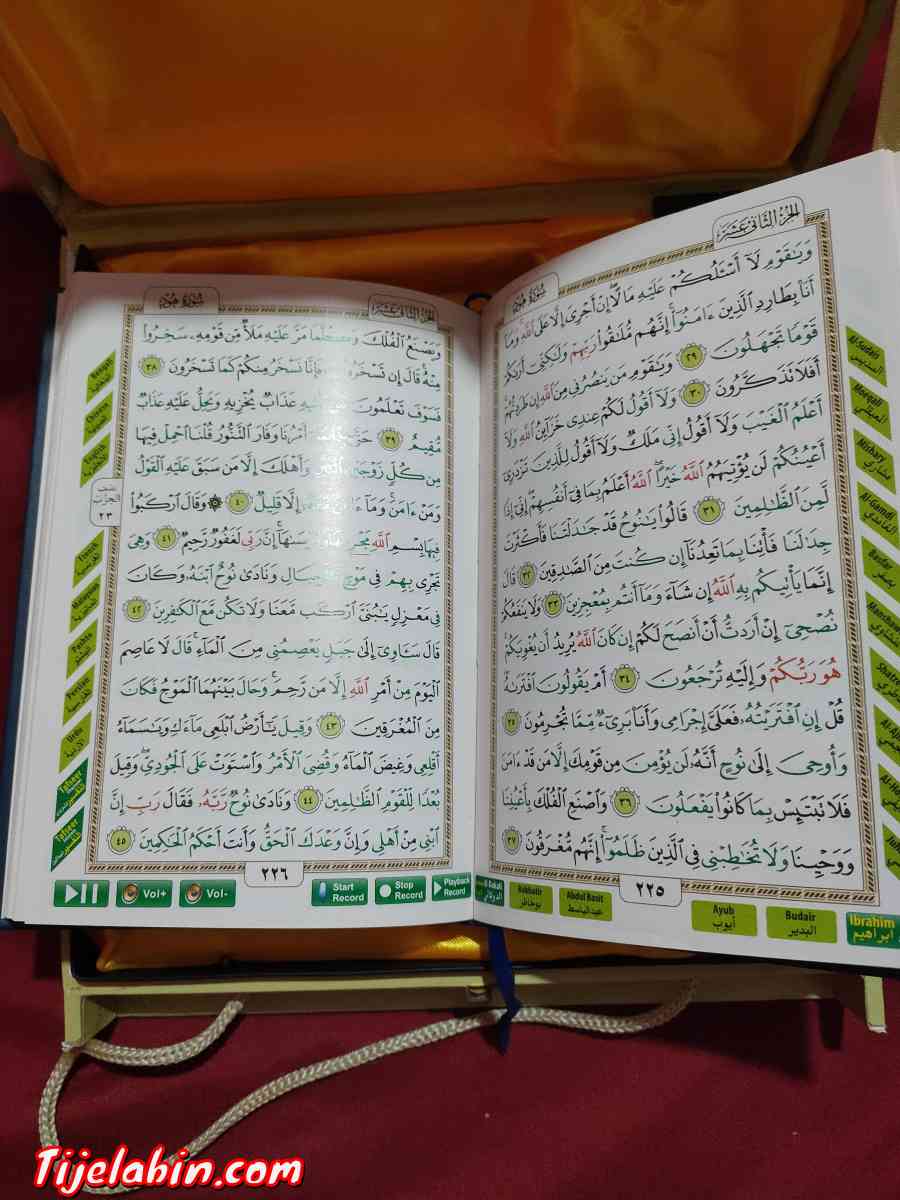 الجزء الثاني عشر
سورة هود
وَيَٰقَوْمِ لَآ أَسْـَٔلُكُمْ عَلَيْهِ مَالًا إِنْ أَجْرِىَ إِلَّا عَلَى ٱللَّهِ وَمَآ
أَنَا۠ بِطَارِدِ ٱلَّذِينَ ءَامَنُوٓا۟ إِنَّهُم مُّلَٰقُوا۟ رَبِّهِمْ وَلَٰكِنِّىٓ أَرَىٰكُمْ
قَوْمًا تَجْهَلُونَ ٢٩ وَيَٰقَوْمِ مَن يَنصُرُنِى مِنَ ٱللَّهِ إِن طَرَدتُّهُمْ
أَفَلَا تَذَكَّرُونَ ٣٠ وَلَآ أَقُولُ لَكُمْ عِندِى خَزَآئِنُ ٱللَّهِ وَلَآ
أَعْلَمُ ٱلْغَيْبَ وَلَآ أَقُولُ إِنِّى مَلَكٌ وَلَآ أَقُولُ لِلَّذِينَ تَزْدَرِىٓ
أَعْيُنُكُمْ لَن يُؤْتِيَهُمُ ٱللَّهُ خَيْرًا ٱللَّهُ أَعْلَمُ بِمَا فِىٓ أَنفُسِهِمْ إِنِّىٓ إِذًا
لَّمِنَ ٱلظَّٰلِمِينَ ٣١ قَالُوا۟ يَٰنُوحُ قَدْ جَٰدَلْتَنَا فَأَكْثَرْتَ
جِدَٰلَنَا فَأْتِنَا بِمَا تَعِدُنَآ إِن كُنتَ مِنَ ٱلصَّٰدِقِينَ ٣٢ قَالَ
إِنَّمَا يَأْتِيكُم بِهِ ٱللَّهُ إِن شَآءَ وَمَآ أَنتُم بِمُعْجِزِينَ ٣٣ وَلَا يَنفَعُكُمْ
نُصْحِىٓ إِنْ أَرَدتُّ أَنْ أَنصَحَ لَكُمْ إِن كَانَ ٱللَّهُ يُرِيدُ أَن يُغْوِيَكُمْ
هُوَ رَبُّكُمْ وَإِلَيْهِ تُرْجَعُونَ ٣٤ أَمْ يَقُولُونَ ٱفْتَرَىٰهُ
قُلْ إِنِ ٱفْتَرَيْتُهُۥ فَعَلَىَّ إِجْرَامِى وَأَنَا۠ بَرِىٓءٌ مِّمَّا تُجْرِمُونَ ٣٥
وَأُوحِىَ إِلَىٰ نُوحٍ أَنَّهُۥ لَن يُؤْمِنَ مِن قَوْمِكَ إِلَّا مَن قَدْ ءَامَنَ
فَلَا تَبْتَئِسْ بِمَا كَانُوا۟ يَفْعَلُونَ ٣٦ وَٱصْنَعِ ٱلْفُلْكَ بِأَعْيُنِنَا
وَوَحْيِنَا وَلَا تُخَٰطِبْنِى فِى ٱلَّذِينَ ظَلَمُوٓا۟ إِنَّهُم مُّغْرَقُونَ ٣٧
٢٢٥
Al-Sudais
السديس
Moeqali
المعيقلي
Mishary
مشاري
Al-Gamdi
الغامدي
Basfar
بصفر
Shatre
Bukhatir
بوخاطر
Abdul Basit
عبدالباسط
Ayub
أيوب
Budair
البدير
Ibrahim
ابراهيم
الجزء الثاني عشر
سورة هود
وَيَصْنَعُ ٱلْفُلْكَ وَكُلَّمَا مَرَّ عَلَيْهِ مَلَأٌ مِّن قَوْمِهِۦ سَخِرُوا۟
مِنْهُ قَالَ إِن تَسْخَرُوا۟ فَإِنَّا نَسْخَرُ مِنكُمْ كَمَا تَسْخَرُونَ ٣٨
فَسَوْفَ تَعْلَمُونَ عَذَابٌ يُخْزِيهِ وَيَحِلُّ عَلَيْهِ عَذَابٌ
مُّقِيمٌ ٣٩ أَمْرُنَا وَفَارَ ٱلتَّنُّورُ قُلْنَا ٱحْمِلْ فِيهَا
مِن كُلٍّ زَوْجَيْنِ وَأَهْلَكَ إِلَّا مَن سَبَقَ عَلَيْهِ ٱلْقَوْلُ
وَمَنْ ءَامَنَ وَمَآ ءَامَنَ إِلَّا قَلِيلٌ ٤٠ ۞ وَقَالَ ٱرْكَبُوا۟
فِيهَا بِسْمِ ٱللَّهِ إِنَّ رَبِّى لَغَفُورٌ رَّحِيمٌ ٤١ وَهِىَ
تَجْرِى بِهِمْ فِى مَوْجٍ كَٱلْجِبَالِ وَنَادَىٰ نُوحٌ ٱبْنَهُۥ وَكَانَ
فِى مَعْزِلٍ يَٰبُنَىَّ ٱرْكَب مَّعَنَا وَلَا تَكُن مَّعَ ٱلْكَٰفِرِينَ ٤٢
قَالَ سَـَٔاوِىٓ إِلَىٰ جَبَلٍ يَعْصِمُنِى مِنَ ٱلْمَآءِ قَالَ لَا عَاصِمَ
ٱلْيَوْمَ مِنْ أَمْرِ ٱللَّهِ إِلَّا مَن رَّحِمَ وَحَالَ بَيْنَهُمَا ٱلْمَوْجُ فَكَانَ
مِنَ ٱلْمُغْرَقِينَ ٤٣ وَقِيلَ يَٰٓأَرْضُ ٱبْلَعِى مَآءَكِ وَيَٰسَمَآءُ
أَقْلِعِى وَغِيضَ ٱلْمَآءُ وَقُضِىَ ٱلْأَمْرُ وَٱسْتَوَتْ عَلَى ٱلْجُودِىِّ وَقِيلَ
بُعْدًا لِّلْقَوْمِ ٱلظَّٰلِمِينَ ٤٤ وَنَادَىٰ نُوحٌ رَّبَّهُۥ فَقَالَ رَبِّ إِنَّ
ٱبْنِى مِنْ أَهْلِى وَإِنَّ وَعْدَكَ ٱلْحَقُّ وَأَنتَ أَحْكَمُ ٱلْحَٰكِمِينَ ٤٥
٢٢٦
نصف
الحزب
٢٣
Uzbek
Malayam
Pashto
Persian
Urdu
الاردية
Tafseer
Tafseer
Vol+
Vol-
Start
Record
Stop
Record
Playback
Record
Tijelabin.com